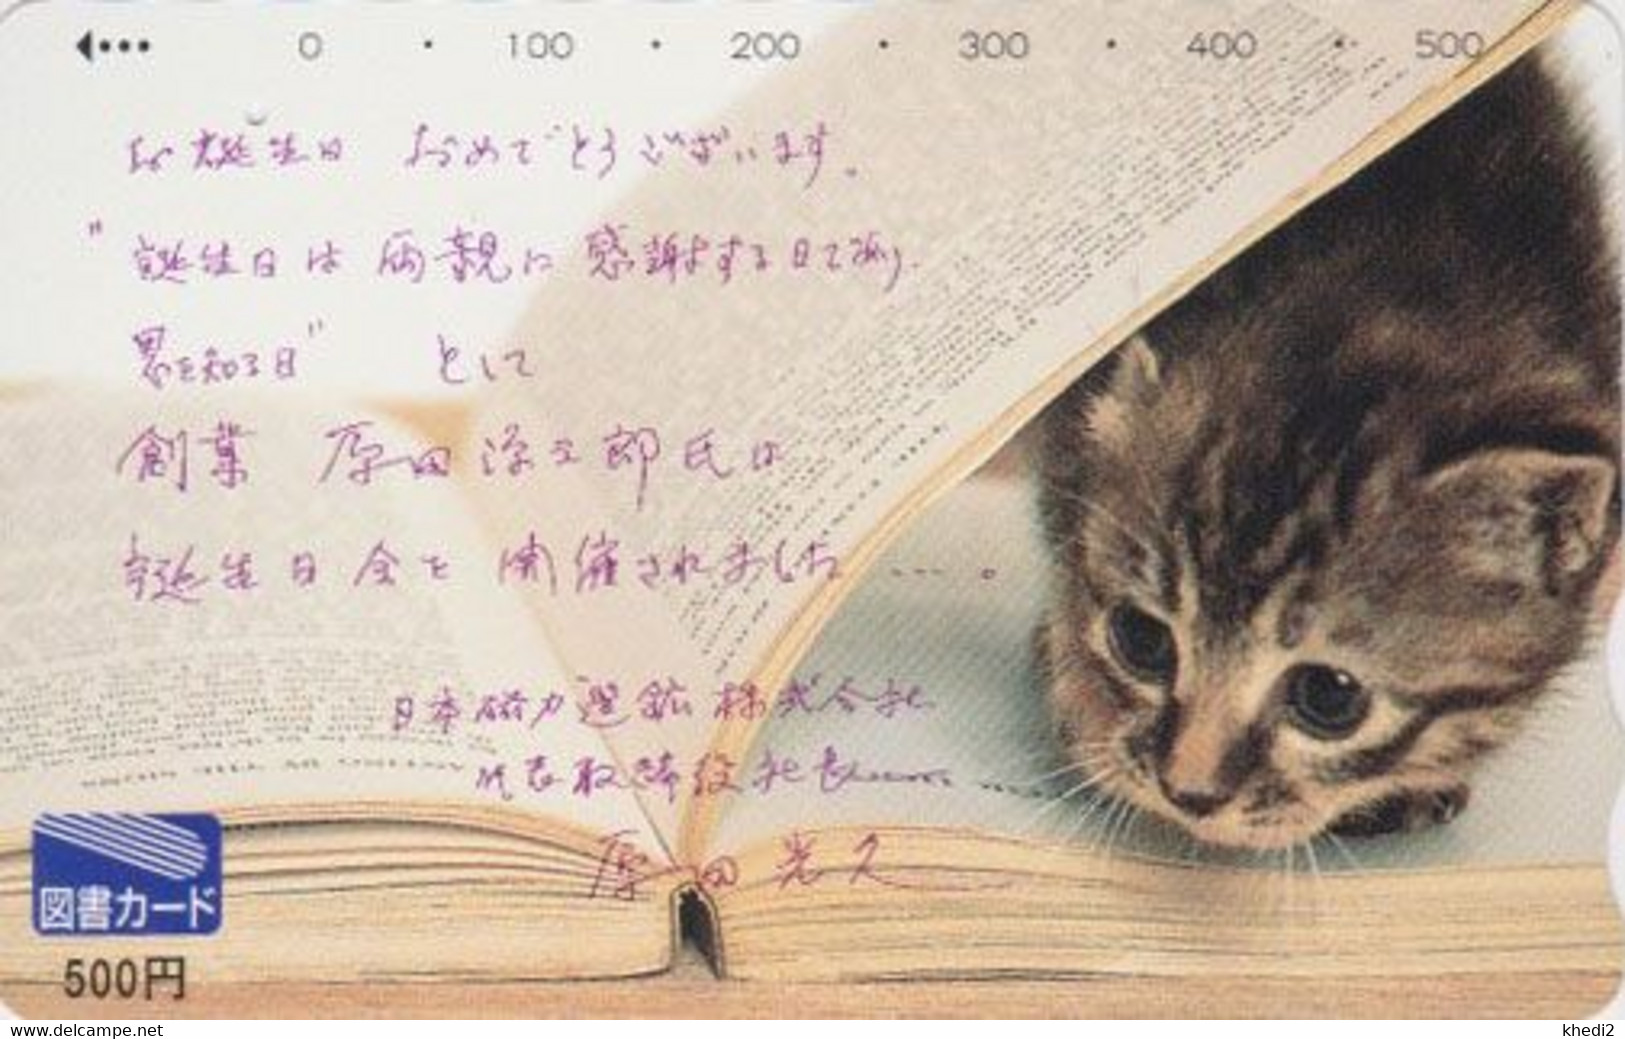 0 ・ 100 ・ 200 ・ 300 ・ 400 ・ 500
お誕生日 おめでとうございます。
"誕生日は両親に感謝する日であり.
恩を知る日" として
創業 原田 三郎氏は
誕生日会を開催されました ---。
日本磁力選鉱株式会社
代表取締役社長
原田光久
図書カード
500円
www.delcampe.net
khedi2